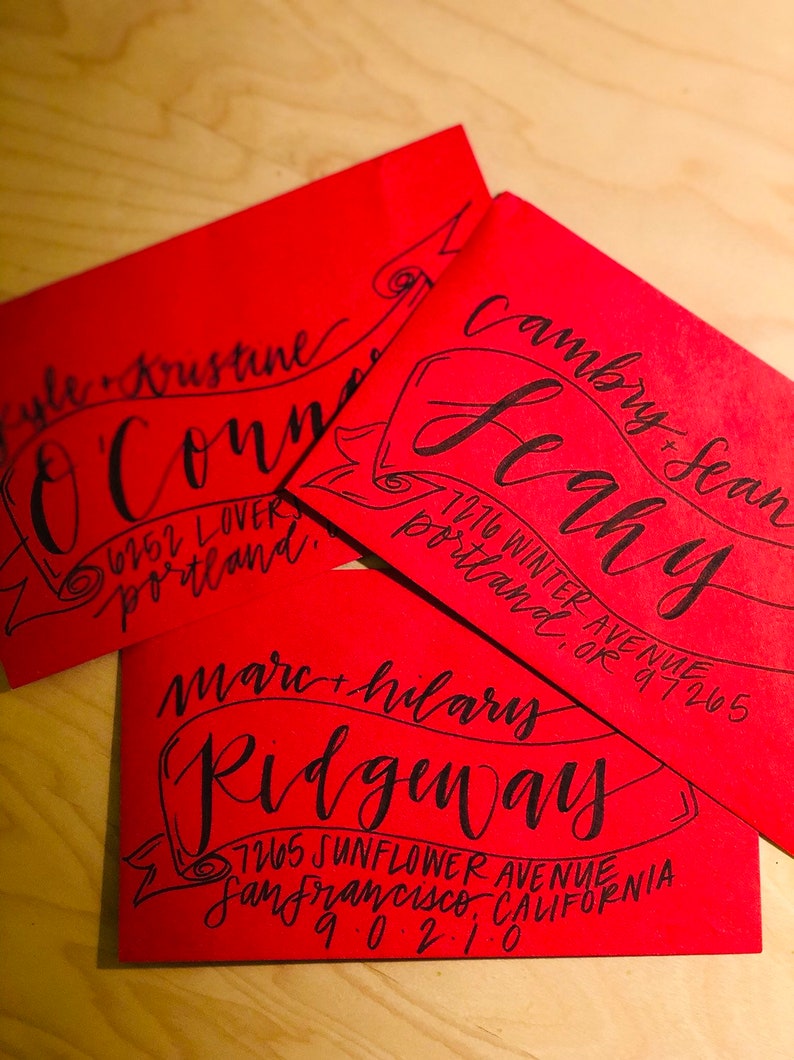 Kyle + Kristine
O'Conno
6252 LOVERS
portland,
Cambry + Sean
Leahy
7276 WINTER AVENUE
portland, OR 97265
marc + hilary
Ridgeway
7265 SUNFLOWER AVENUE
San Francisco, CALIFORNIA
9·0·2·1·0